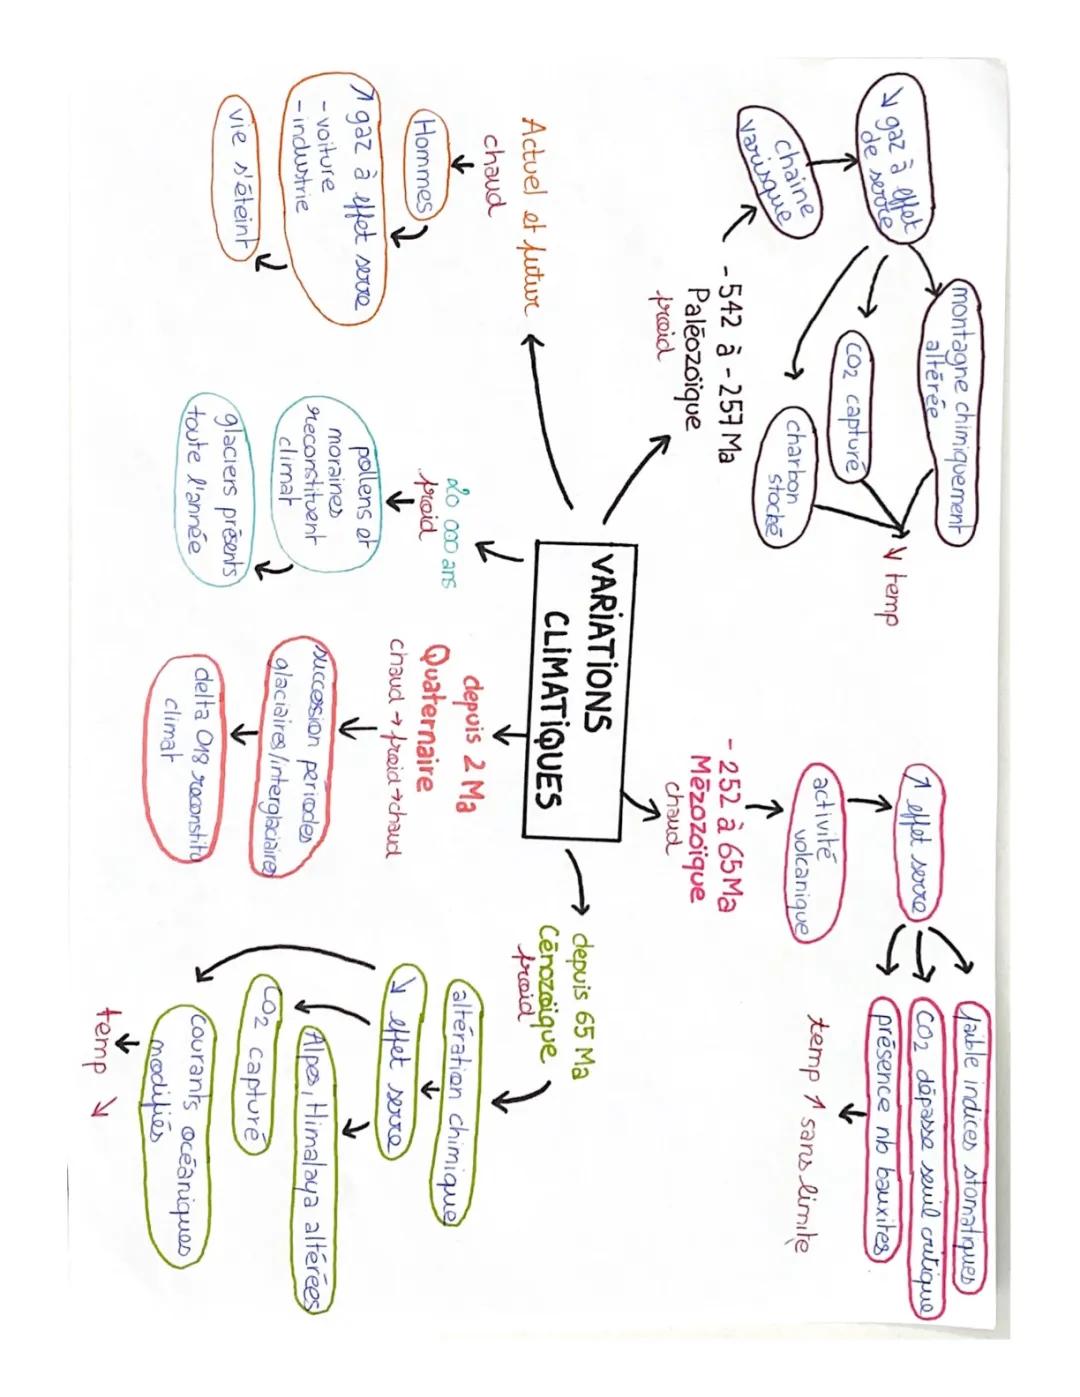 ↘ gaz à effet
de serre
chaine
varisque
montagne chimiquement
altérée
CO2 capturé
charbon
stocké
↘ temp
-542 à -257 Ma
Paléozoïque
froid
↗ effet serre
activité
volcanique
faible indices stomatiques
CO2 dépasse seuil critique
présence nb bauxites
temp ↗ sans limite
-252 à 65 Ma
Mézozoïque
chaud
VARIATIONS
CLIMATIQUES
Actuel et futur
chaud
Hommes
↗ gaz à effet serre
- voiture
- industrie
vie s'éteint
20 000 ans
froid
pollens et
moraines
reconstituent
climat
glaciers présents
toute l'année
depuis 2 Ma
Quaternaire
chaud → froid → chaud
succession périodes
glaciaires/interglaciaires
delta O18 reconstitu
climat
depuis 65 Ma
Cénozoïque
froid
altération chimique
↘ effet serre
Alpes, Himalaya altérées
CO2 capturé
courants océaniques
modifiés
temp ↘